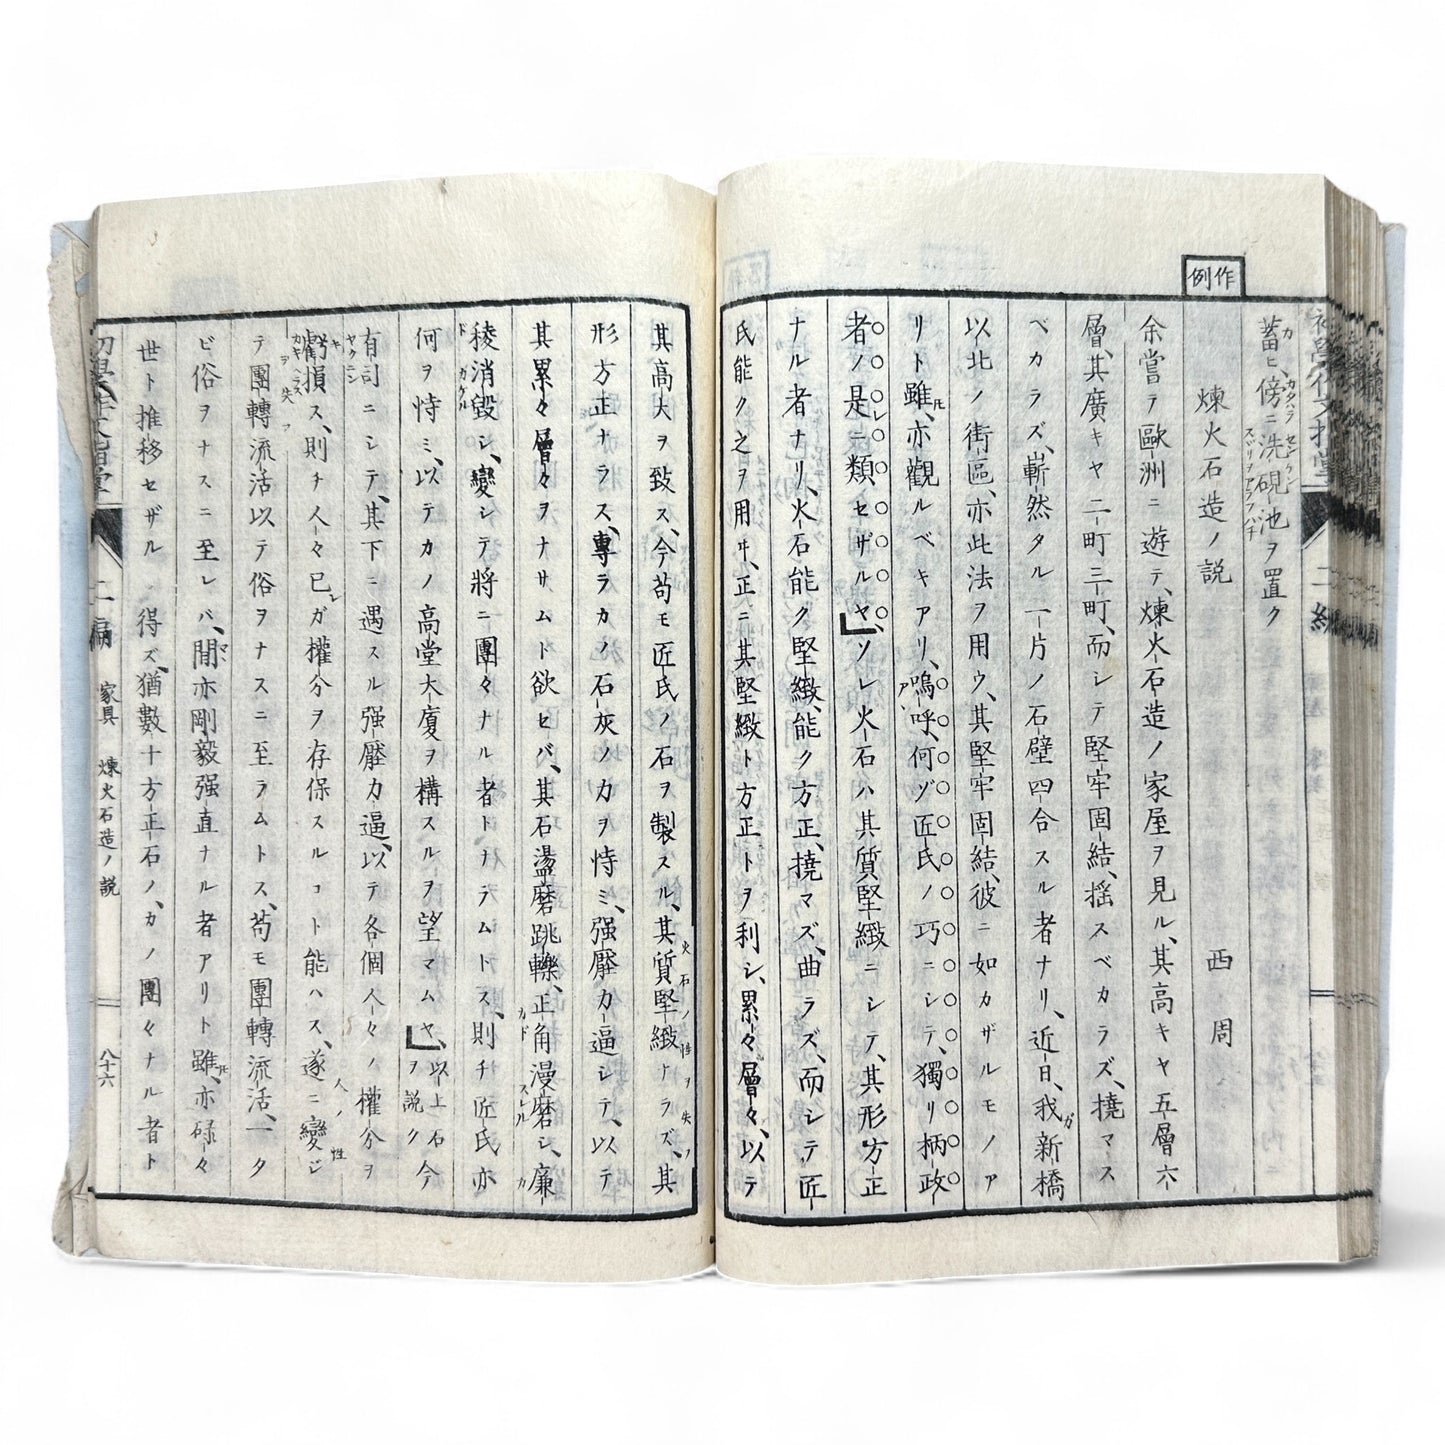 作例
蓄ヒ、傍ニ洗硯池ヲ置ク
煉火石造ノ説　西周
余嘗テ歐洲ニ遊テ、煉火石造ノ家屋ヲ見ル、其高キヤ五層六
層、其廣キヤ二町三町、而シテ堅牢固結、揺スベカラズ、撓マス
ベカラズ、嶄然タル一片ノ石壁四合スル者ナリ、近日、我新橋
以北ノ街區、亦此法ヲ用ウ、其堅牢固結、彼ニ如カザルモノア
リト雖、亦觀ルベキアリ、嗚呼、何ゾ匠氏ノ巧ニシテ、獨リ柄政
者ノ是ニ類セザルヤ、」ソレ火石ハ其質堅緻ニシテ、其形方正
ナル者ナリ、火石能ク堅緻、能ク方正、撓マズ、曲ラズ、而シテ匠
氏能ク之ヲ用ヰ、正ニ其堅緻ト方正トヲ利シ、累々層々、以テ
其高大ヲ致ス、今苟モ匠氏ノ石ヲ製スル、其質堅緻ナラズ、其
火石ノ性ヲ失フ
形方正ナラス、專ラカノ石灰ノカヲ恃ミ、强壓力逼シテ、以テ
其累々層々ヲナサムト欲セバ、其石盪磨跳轢、正角漫磨シ、廉
稜消毀シ、變シテ將ニ團々ナル者トナラムトス、則チ匠氏亦
何ヲ恃ミ、以テカノ高堂大廈ヲ構スルヲ望マムヤ、」以上石ヲ説ク今
有司ニシテ、其下ニ遇スル强壓力逼、以テ各個人々ノ權分ヲ
虧損ス、則チ人々己ガ權分ヲ存保スルコト能ハス、遂ニ變シ
人ノ性ヲ失フ
テ團轉流活以テ俗ヲナスニ至ラムトス、苟モ團轉流活、一タ
ビ俗ヲナスニ至レバ、間亦剛毅强直ナル者アリト雖、亦碌々
世ト推移セザルヿ得ズ、猶數十方正石ノ、カノ團々ナル者ト
二編　家具　煉火石造ノ説　八十六